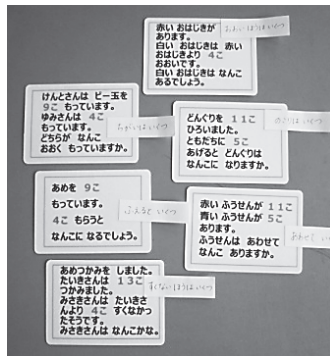 赤い おはじきが
あります。
白い おはじきは 赤い
おはじきより 4こ
おおいです。
白い おはじきは なんこ
あるでしょう。
おおいほうはいくつ
けんとさんは ビー玉を
9こ もっています。
ゆみさんは 4こ
もっています。
どちらが なんこ
おおく もっていますか。
ちがいはいくつ
どんぐりを 11こ
ひろいました。
ともだちに 5こ
あげると どんぐりは
なんこに なりますか。
のこりはいくつ
あめを 9こ
もっています。
4こ もらうと
なんこに なるでしょう。
ふえるといくつ
赤い ふうせんが 11こ
青い ふうせんが 5こ
あります。
ふうせんは あわせて
なんこ ありますか。
あわせていくつ
あめつかみを しました。
たいきさんは 13こ
つかみました。
みさきさんは たいきさ
んより 4こ すくなかっ
たそうです。
みさきさんは なんこかな。
すくないほうはいくつ